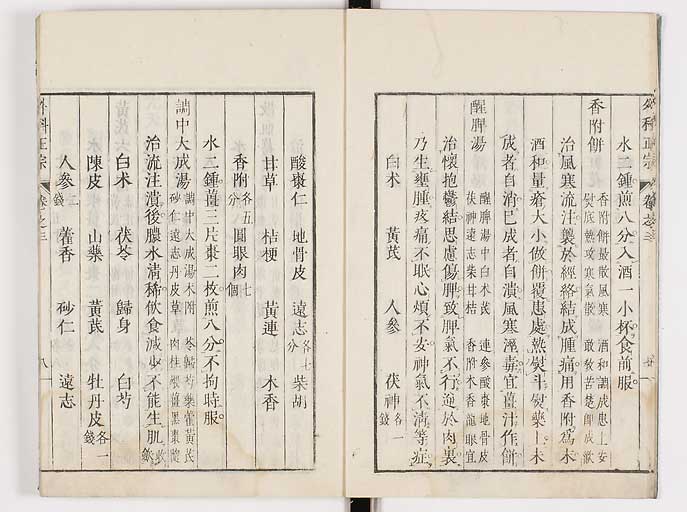 水二鍾煎八分入酒一小杯食前服
香附餅
香附餅最散風寒 酒和調成患上安
熨底熱攻寒氣散 敢敎苦楚卽成歡
治風寒流注襲於經絡結成腫痛用香附爲末
酒和量瘡大小做餅覆患處熱熨斗熨藥上未
成者自消已成者自潰風寒溼毒宜薑汁作餅
醒脾湯
醒脾湯中白朮芪 連參酸棗地骨皮
茯神遠志柴甘桔 香附木香龍眼宜
治懷抱鬱結思慮傷脾致脾氣不行逆於肉裏
乃生壅腫疼痛不眠心煩不安神氣不淸等症
白朮 黃芪 人參 茯神各一錢
酸棗仁 地骨皮 遠志各七分 柴胡
甘草 桔梗 黃連 木香
香附各五分 圓眼肉七個
水二鍾薑三片棗二枚煎八分不拘時服
調中大成湯
調中大成湯朮附 苓歸芍藥藿黃芪
砂仁遠志丹皮草 肉桂煨薑黑棗隨
治流注潰後膿水淸稀飮食減少不能生肌收斂
白朮 茯苓 歸身 白芍
陳皮 山藥 黃芪 牡丹皮各一錢
人參二錢 藿香 砂仁 遠志
外科正宗 卷之三